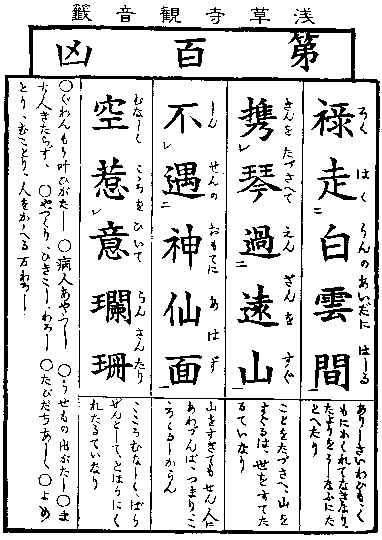 浅草寺観音籤
第百凶
禄走白雲間
ろくはくうんのあいだにはしる
ありしさいわひも、く
もにかくれてなきなり、
たよりをうしなふにた
とへたり
携琴過遠山
きんをたづさへてえんざんをすぐ
ことをたづさへ、山を
すぐるは、世をすてた
るていなり
不遇神仙面
しんせんのおもてにあはず
山をすぎてもせん人に
あわずんば、つまりこ
ころくるしからん
空惹意瓓珊
むなしくこころをひいてらんさんたり
こころむなしく、ばう
ぜんとして、とほうにく
れたるていなり
○ぐわんもう叶ひがたし ○病人あやうし ○うせもの出がたし ○ま
ち人きたらず、 ○やづくり、ひきこし、わろし ○たびだちあしく ○よめ
とり、むことり、人をかゝへる万わろし